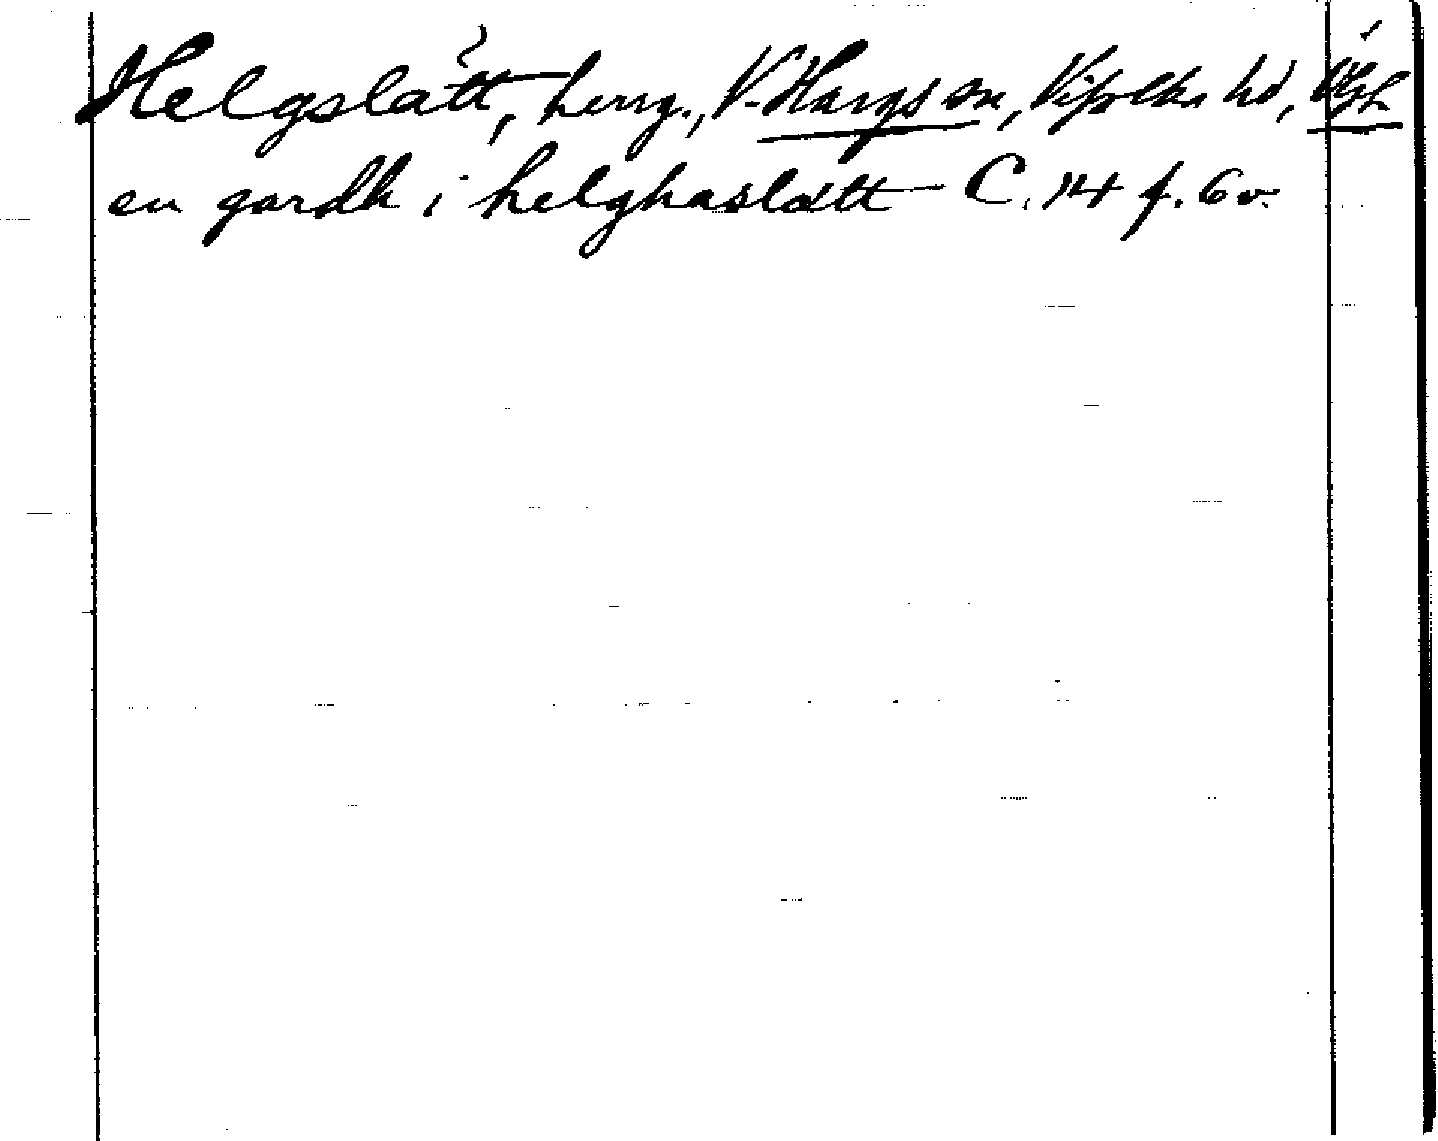 Helgslätt, herrg., V. Hargs sn, Vifolka hd, Ögtl
en gardh i helghaslätt C. 14 f. 6v.